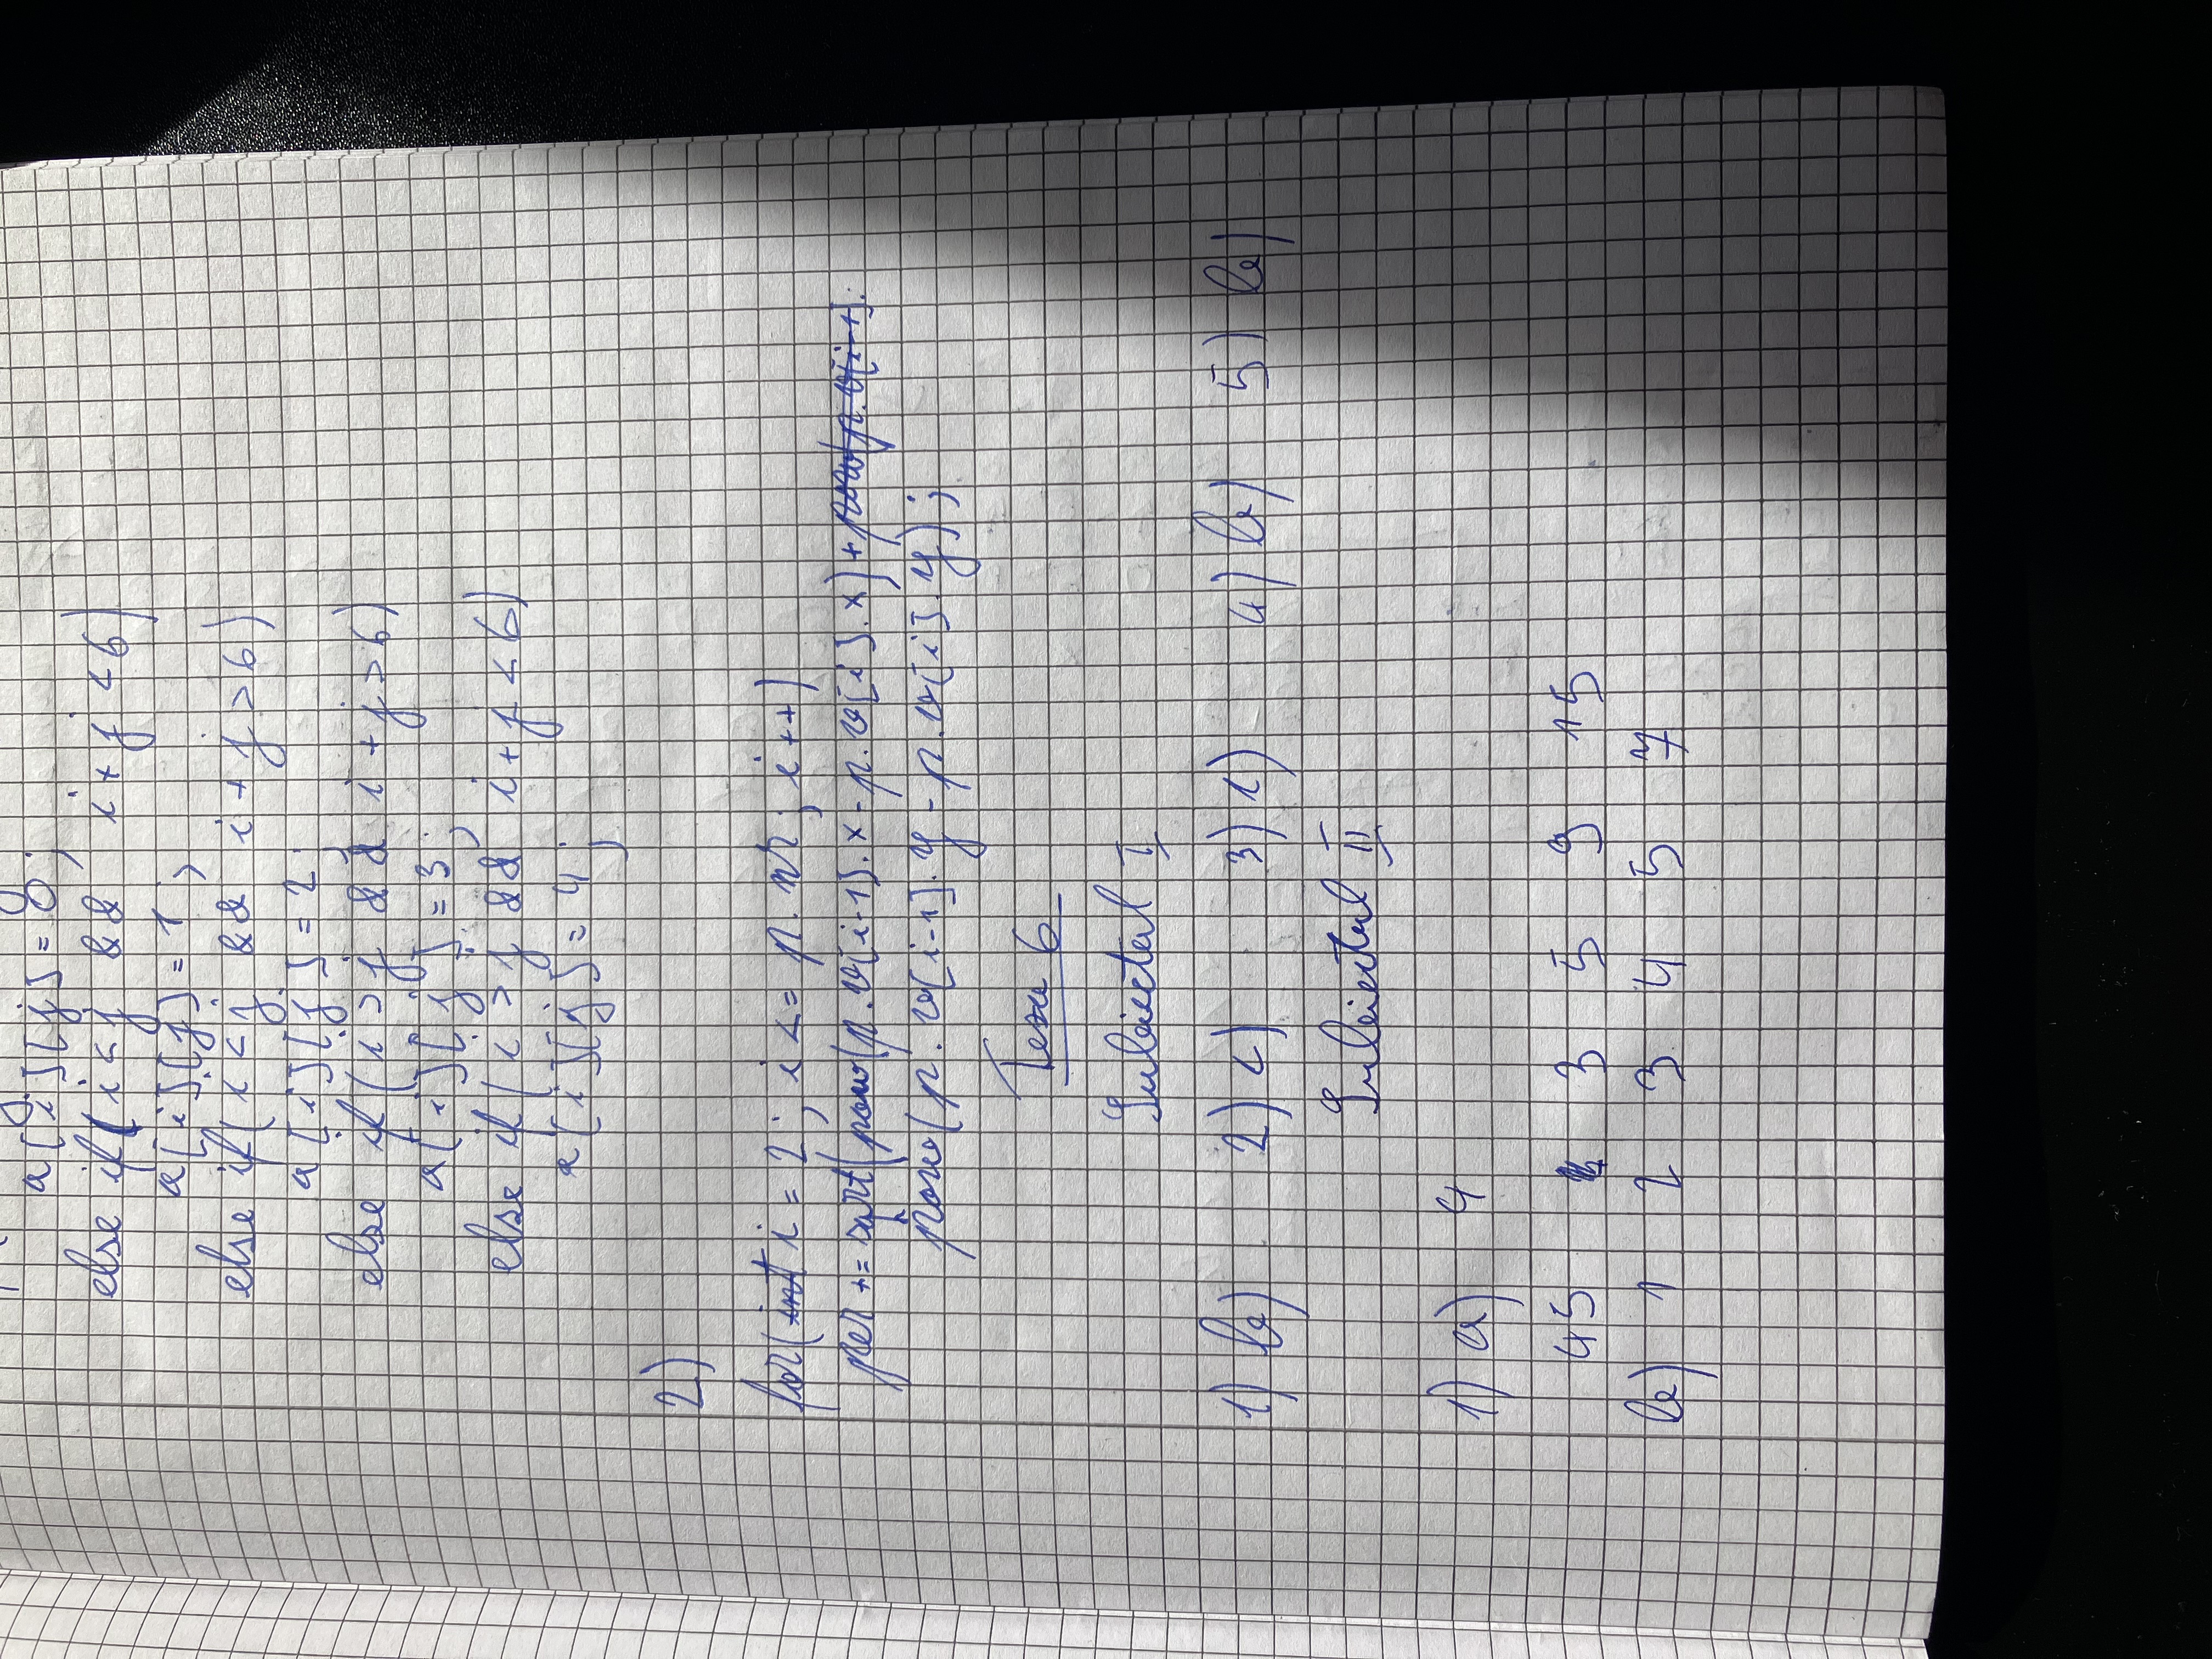 a[i][j] = 0;
else if(i < j && i + j < 6)
a[i][j] = 1;
else if(i < j && i + j > 6)
a[i][j] = 2;
else if(i > j && i + j > 6)
a[i][j] = 3;
else if(i > j && i + j < 6)
a[i][j] = 4;
2)
for(int i = 2; i <= p.nr; i++)
per += sqrt(pow(p.v[i-1].x - p.v[i].x) + pow(p.v[i-1].
pow(p.v[i-1].y - p.v[i].y);
Teza 6
Subiectul I
1) b) 2) c) 3) c) 4) b) 5) b)
Subiectul II
1) a) 4
45 3 5 9 15
b) 1 2 3 4 5 7